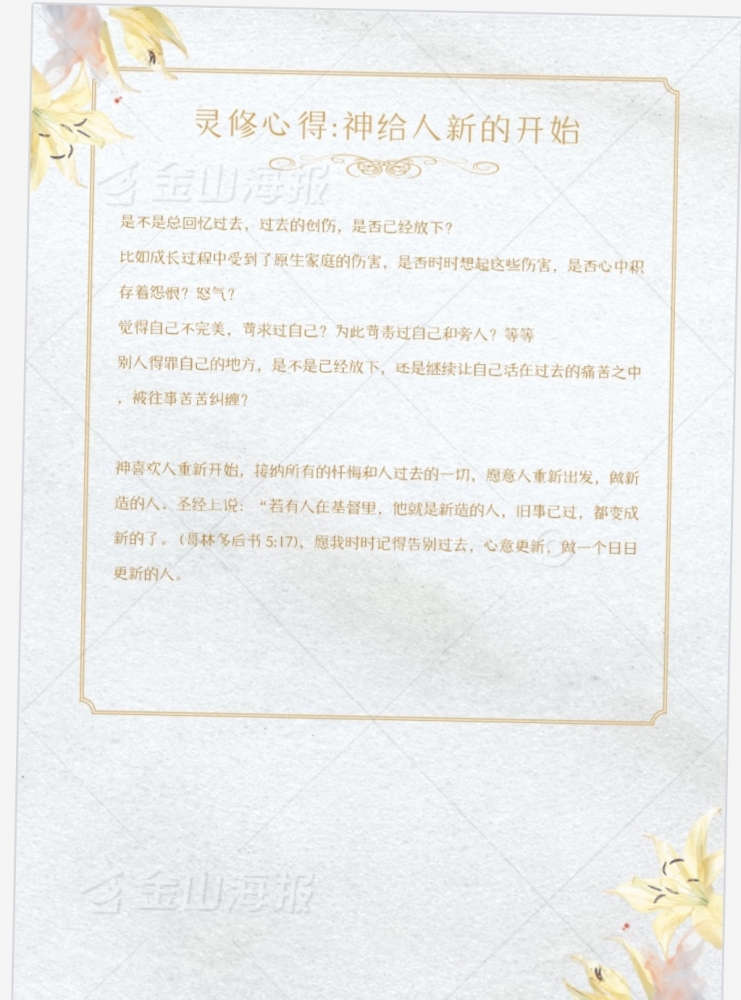 灵修心得:神给人新的开始
金山海报
是不是总回忆过去，过去的创伤，是否已经放下？
比如成长过程中受到了原生家庭的伤害，是否时时想起这些伤害，是否心中积
存着怨恨？怒气？
觉得自己不完美，苛求过自己？为此苛责过自己和旁人？等等
别人得罪自己的地方，是不是已经放下，还是继续让自己活在过去的痛苦之中
，被往事苦苦纠缠？
神喜欢人重新开始，接纳所有的忏悔和人过去的一切，愿意人重新出发，做新
造的人。圣经上说：“若有人在基督里，他就是新造的人，旧事已过，都变成
新的了。(哥林多后书 5:17)，愿我时时记得告别过去，心意更新，做一个日日
更新的人。
金山海报